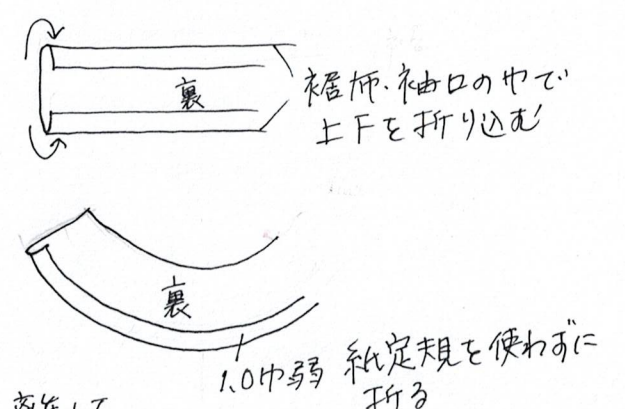 裏
裾布・袖口の巾で
上下を折り込む
裏
1.0巾弱
紙定規を使わずに
折る